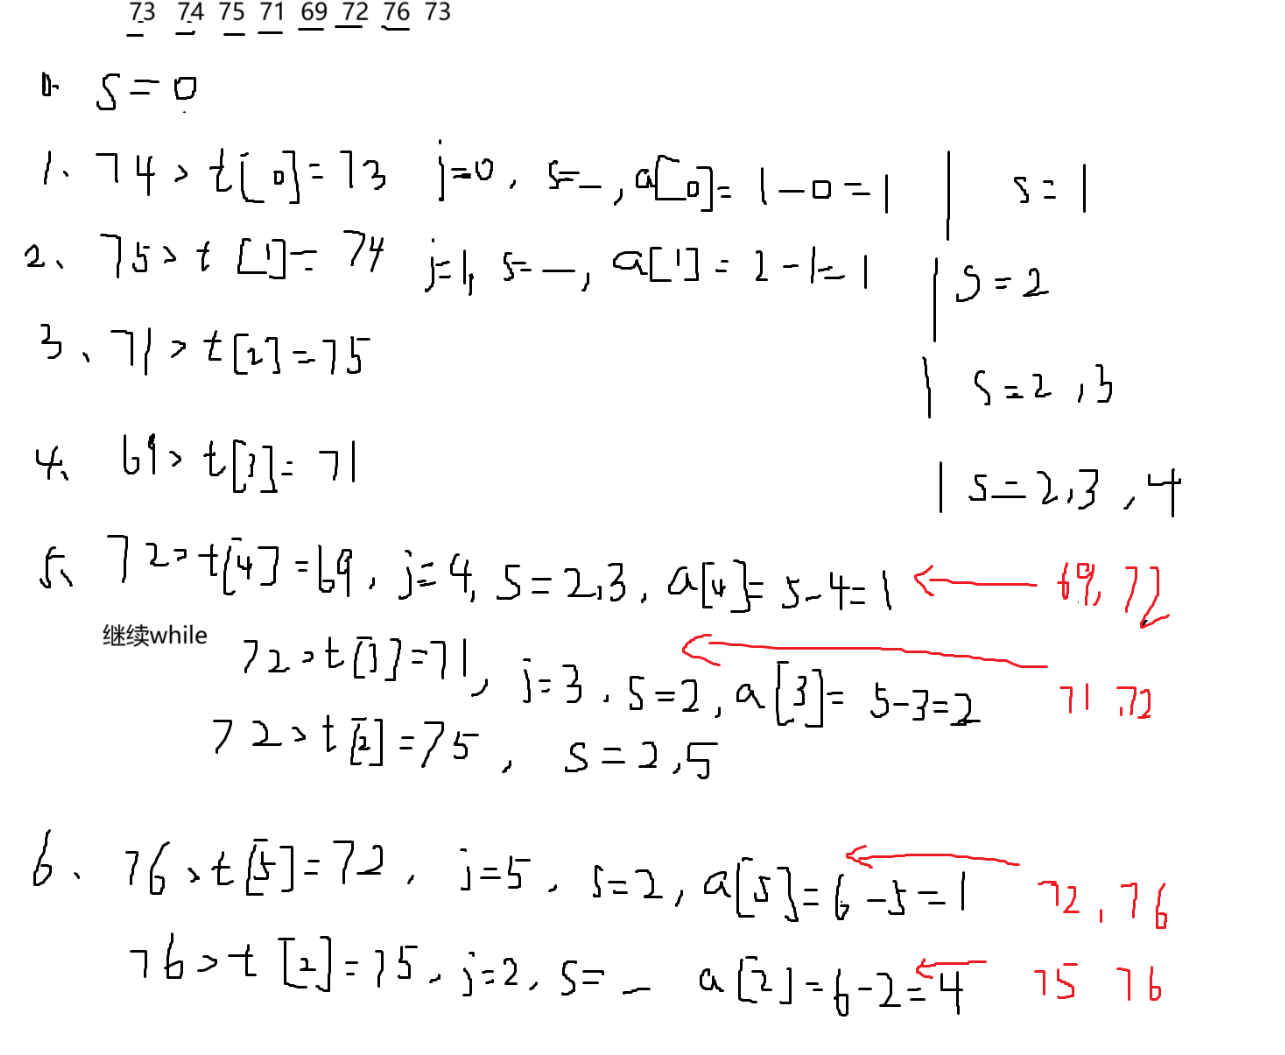 73 74 75 71 69 72 76 73
0. s=0
1、74>t[0]=73 j=0, s=_, a[0]=1-0=1 | s=1
2、75>t[1]=74 j=1, s=_, a[1]=2-1=1 | s=2
3、71>t[2]=75 | s=2,3
4、69>t[3]=71 | s=2,3,4
5、72>t[4]=69, j=4, s=2,3, a[4]=5-4=1 ← 69,72
继续while 72>t[3]=71, j=3, s=2, a[3]=5-3=2 ← 71,72
72>t[2]=75, s=2,5
6、76>t[5]=72, j=5, s=2, a[5]=6-5=1 ← 72,76
76>t[2]=75, j=2, s=_ a[2]=6-2=4 ← 75 76